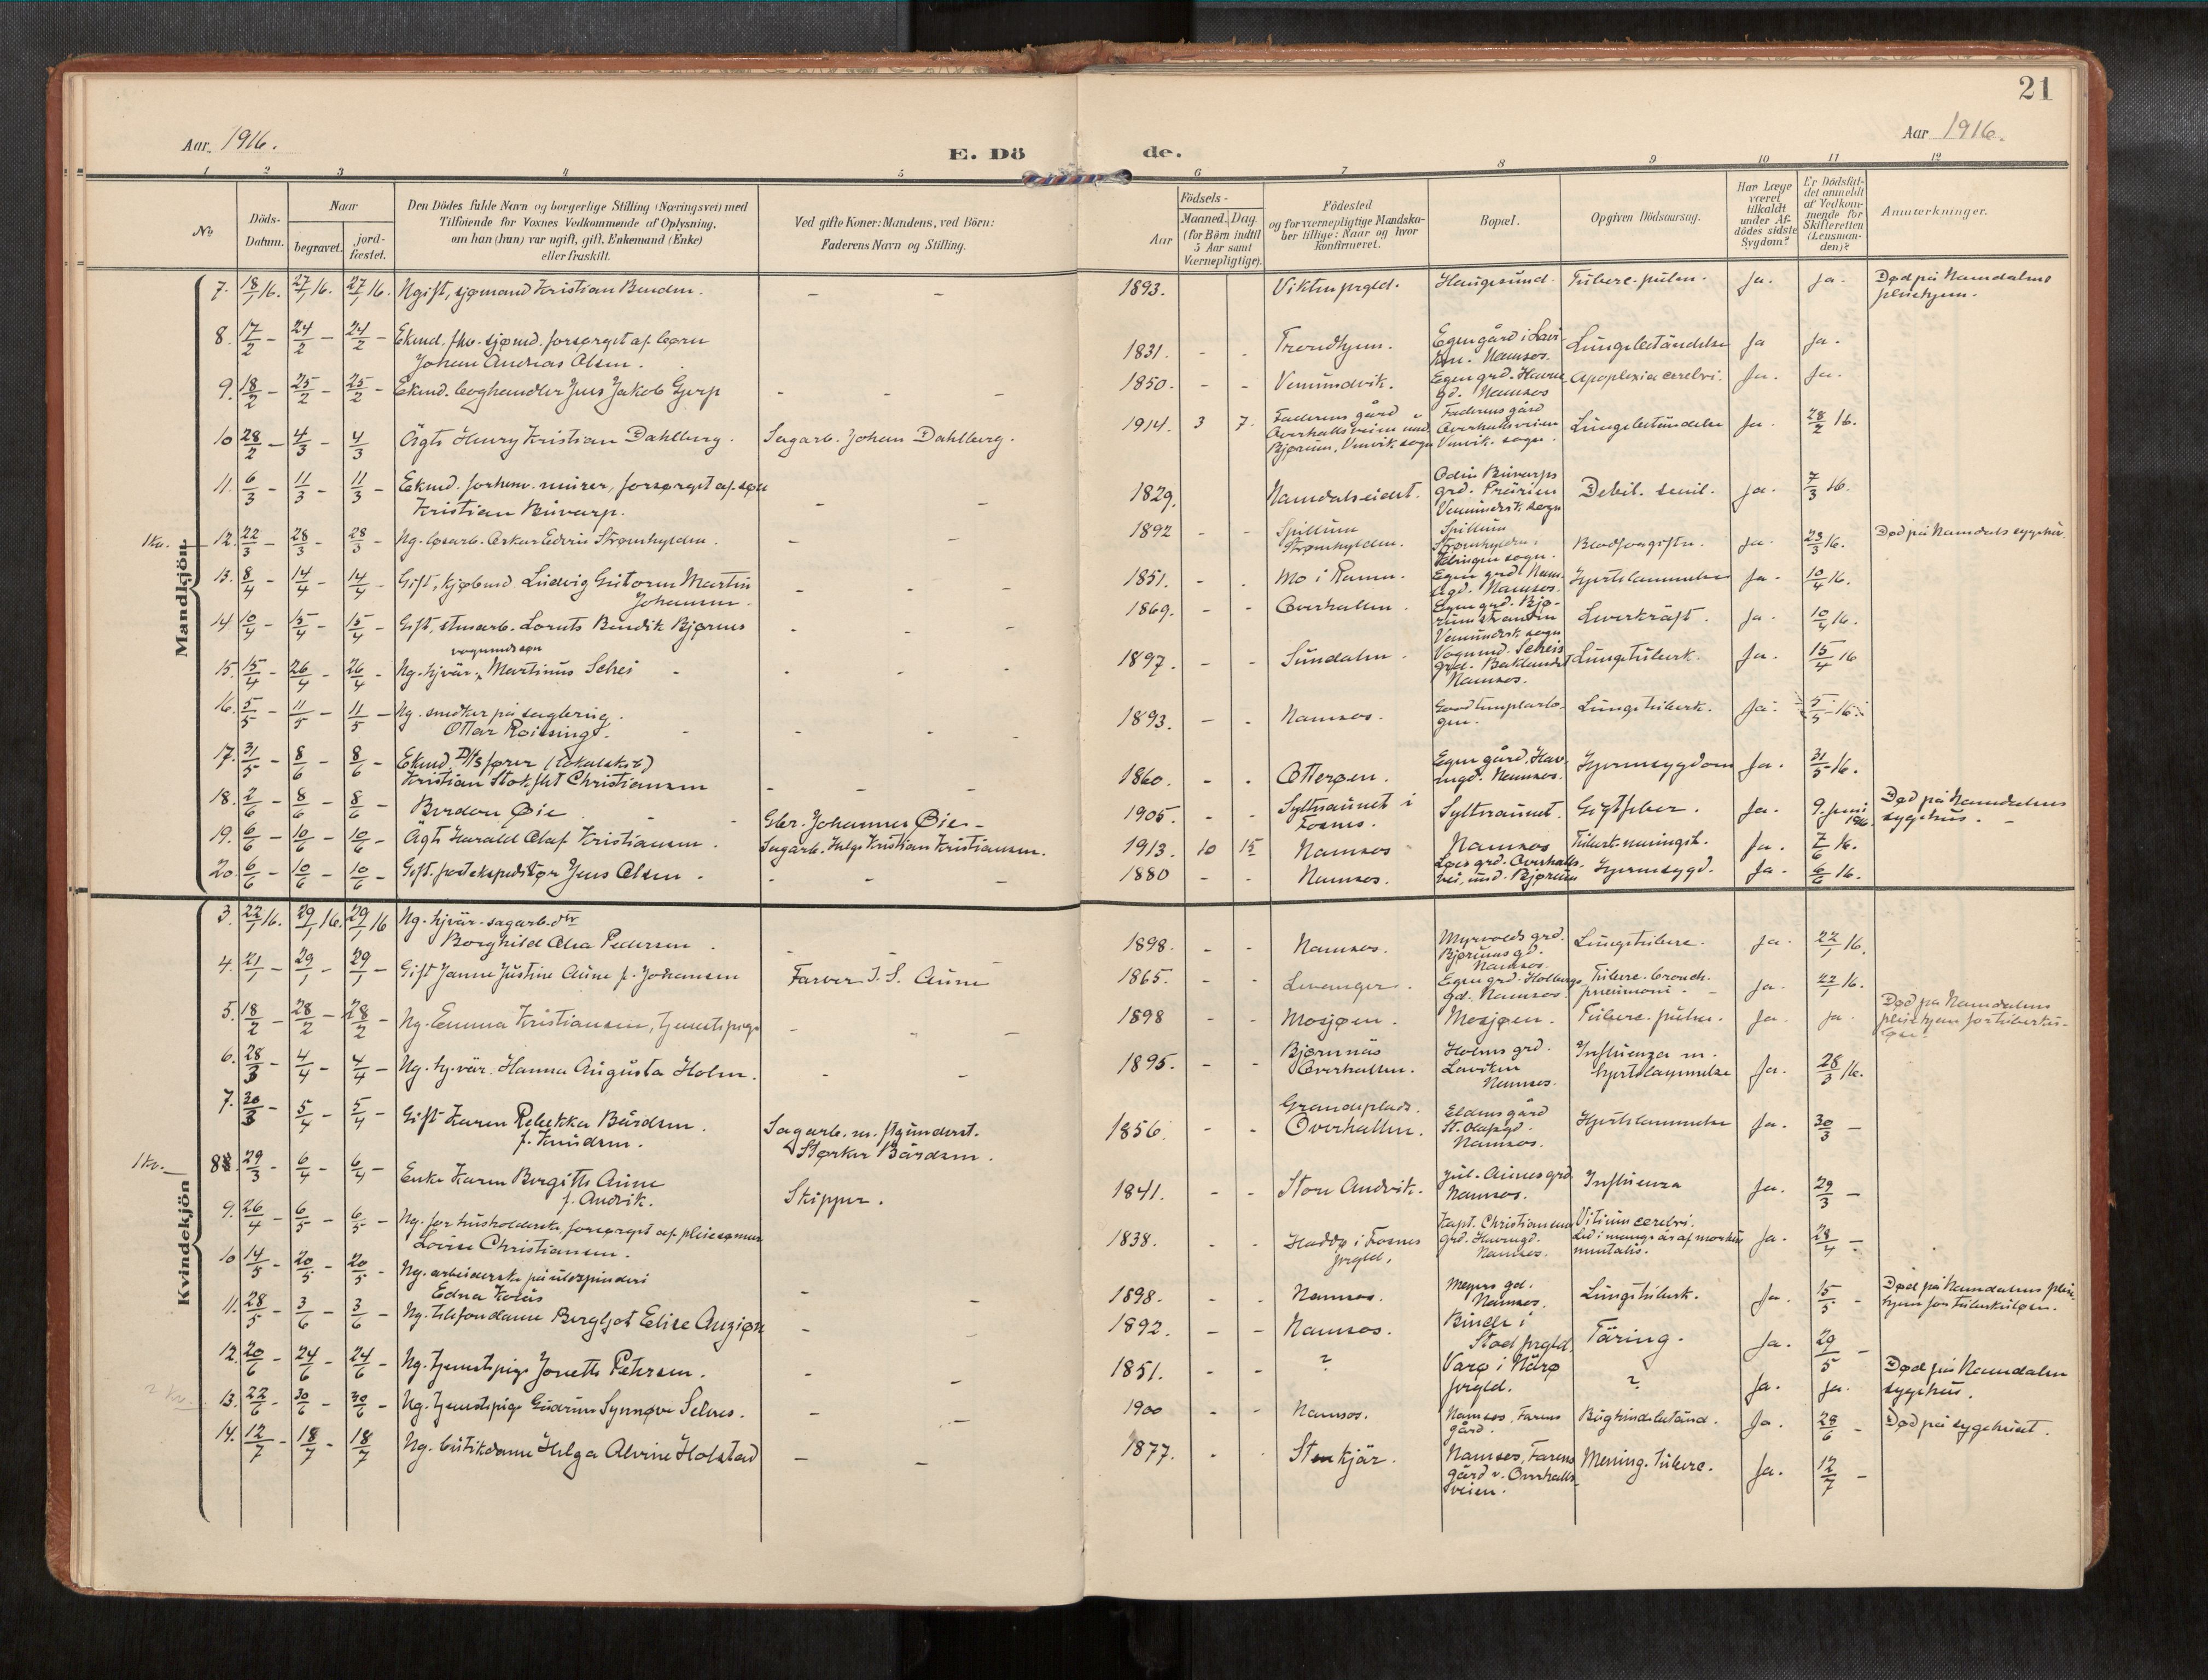 21
Aar 1916.
E. Dö
de.
Aar 1916.
1 2 3 4 5 6 7 8 9 10 11 12
No
Döds-
Datum.
Naar
begravet.
jord-
fæstet.
Den Dödes fulde Navn og borgerlige Stilling (Næringsvei) med
Tilföiende for Voxnes Vedkommende af Oplysning,
om han (hun) var ugift, gift, Enkemand (Enke)
eller fraskilt.
Ved gifte Koner: Mandens, ved Börn:
Faderens Navn og Stilling.
Födsels-
Aar
Maaned. Dag.
(for Börn indtil
5 Aar samt
Værnepligtige).
Födested
og for værnepligtige Mandska-
ber tillige: Naar og hvor
konfirmeret.
Bopæl.
Opgiven Dödsaarsag.
Har Læge
været
tilkaldt
under Af-
dödes sidste
Sygdom?
Er Dödsfal-
det anmeldt
af Vedkom-
mende for
Skifteretten
(Lensman-
den)?
Anmærkninger.
Mandkjön
7. 18/1 16. 27/1 16. 27/1 16. Ugift, sjømand Kristian Bendm. - - 1893. Viktnprgld. Haugesund. Tuberc. pulm. Ja. Ja. Død på Namdalens
pleiehjem.
8. 17/2 - 24/2 - 24/2 - Ekmd. fhv. sjømd. forsørget af børn
Johan Andreas Olsen. 1831. - - Trondhjem. Egen gård i Lavi-
ken. Namsos. Lungebetändelse Ja Ja.
9. 18/2 - 25/2 - 25/2 - Ekmd. boghandler Jens Jakob Gjerp - - - 1850. - - Vemundvik. Egen grd. Havne
gd. Namsos Apoplexia cerebri. Ja. Ja.
10 28/2 - 4/3 - 4/3 Ägte Henry Kristian Dahlberg. Sagarb. Johan Dahlberg. 1914. 3 7. Faderens gård v
Overhallsveien und.
Bjørum, Vemvik. sogn Faderens gård
Overhallsveien
Vemvik. sogn. Lungebetändelse Ja. 28/2 16.
11. 6/3 - 11/3 - 11/3 - Ekmd. forhenv. murer, forsørget af søn
Kristian Buvarp. - - 1829. Namdalseidet. Odin Buvarps
grd. Prärien
Vemundvk. sogn Debil. senil. Ja. 7/3 16.
1kv. 12. 22/3 - 28/3 - 28/3 - Ug. løsarb. Oskar Edvin Strømhylden. - - 1892 - - Spillum
Strømhylden. Spillum
Strømhylden.
Klingen sogn. Blodforgiftn. Ja. 23/3 16. Død på Namdals sygehus.
13. 8/4 - 14/4 - 14/4 - Gift, kjøbmd Ludvig Gutorm Martin
Johansen. - - - 1851. - - Mo i Ranen. Egen grd Nam.
Namsos. Hjertelammelse Ja. 10/4 16.
14 10/4 - 15/4 - 15/4 - Gift, stuearb. Lorents Bendik Bjørnes - - 1869. - - Overhallen. Egen grd. Bjø-
rumstranden
Vemundvk. sogn Leverkräft. Ja. 10/4 16.
15. 15/4 - 26/4 - 26/4 - Ug. hjvär. vognmdssøn Martinus Schei - - - 1897. - - Sundalen. Vognmd. Scheis
grd. Baklandet
Namsos. Lungetuberk. Ja. 15/4 16
16. 5/5 - 11/5 - 11/5 - Ug. snedker på sagbrug.
Ottar Roissing. - - - 1893. - - Namsos. Goodtemplarlo-
gen. Lungetuberk. Ja. 5/5 - 16.
17. 31/5 - 8/6 - 8/6 - Ekmd. D/Sfører (lokalskb)
Kristian Stokflet Christiansen - - - 1860. - - Otterøen. Egen gård. Hav-
negd. Namsos. Hjernesygdom Ja. 31/5 - 16.
18. 2/6 - 8/6 - 8/6 - Berdon Øie Gbr. Johannes Øie - 1905. - - Syltnaunet i
Fosnes. Syltnaunet. Gigtfeber. Ja. 9 juni
1916. Død på Namdalens
sygehus. -
19. 6/6 - 10/6 - 10/6 - Ägte Harald Olaf Kristiansen. Sagarb. Helge Kristian Kristiansen. 1913. 10 15 Namsos Namsos Tuberk. meningit. Ja. 7/6 16.
20. 6/6 - 10/6 - 10/6 - Gift. postekspeditør Jens Olsen. - - - 1880 - - Namsos. Løes grd. Overhalls-
vei, und. Bjørum Hjernesygd. Ja. 6/6 16.
Kvindekjön
3. 22/1 16. 29/1 16. 29/1 16 Ug. hjvär. sagarb. dtr
Borghild Alsa Pedersen. - 1898. - - Namsos. Myrvolds grd.
Bjørumsgd.
Namsos Lungetuberc. Ja. 22/1 16.
4. 21/1 - 29/1 - 29/1 - Gift Janna Justine Aune f. Johansen Farver I. S. Aune 1865. - - Levanger. Egen grd. Holbergs
gd. Namsos. Tuberc. bronch.
pneumoni. - Ja. 22/1 16.
5. 18/2 - 28/2 - 28/2 - Ug. Emma Kristiansen, tjenestepige - - 1898 - - Mosjøen. Mosjøen. Tuberc. pulm. Ja. Ja. Død på Namdalens
pleiehjem for tuberku-
løse.
6. 28/3 - 4/4 - 4/4 - Ug. hj.vär. Hanna Augusta Holm. - - 1895. - - Bjørnnäs
Overhallen. Holms grd.
Laviken
Namsos. Influenza m.
hjertelammelse Ja. 28/3 16.
7. 30/3 - 5/4 - 5/4 - Gift Karen Rebekka Bårdsen.
f. Knudsen. Sagarb. m. flgunderst.
Størker Bårdsen. 1856. - - Grandeplads.
Overhallen. Eldens gård
St. Olafsgd.
Namsos. Hjertelammelse Ja. 30/3 -
1kv. 8. 29/3 - 6/4 - 6/4 - Enke Karen Bergitte Aune
f. Andvik. Skipper. 1841. - - Store Andvik. Jul. Aunes grd
Namsos. Influenza Ja. 29/3 -
9. 26/4 - 6/5 - 6/5 - Ug. før husholderske, forsørget af pleiesønnen
Lovise Christiansen. 1838. - - Hadde i Fosnes
prgld. Kapt. Christiansens
grd. Havnegd.
Namsos. Vitium cerebri.
Led i mange år af morbus
mentalis. Ja. 28/4 -
10 14/5 - 20/5 - 20/5 - Ug. arbeiderske på uldspinderi
Edna Kolås - - 1898. - - Namsos. Meyers gd.
Namsos. Lungetuberk. Ja. 15/5 - Død på Namdalens plei-
hjem for tuberkuløse.
11. 28/5 - 3/6 - 3/6 - Ug. telefondame Bergljot Elise Anziøn - - 1892. - - Namsos. Binde i
Stod prgld. Täring. Ja. 29/5 -
12. 20/6 - 24/6 - 24/6 - Ug. tjenestepige Jonette Petersen. - - 1851. - - ? Varø i Närø
prgld. ? Ja. Ja. Død på Namdalen
sygehus.
2 kv. 13. 22/6 - 30/6 - 30/6 - Ug. tjenestepige Gudrun Synnøve Selnes. - - 1900 - - Namsos. Namsos, Farens
gård. Bughindebetänd. Ja. 28/6 - Død på sygehuset.
14. 12/7 - 18/7 - 18/7 Ug. butikdame Helga Alvine Holstad - - 1877. - - Stenkjär. Namsos, Farens
gård v. Overhalls-
veien. Mening. tuberc. Ja. 12/7 -